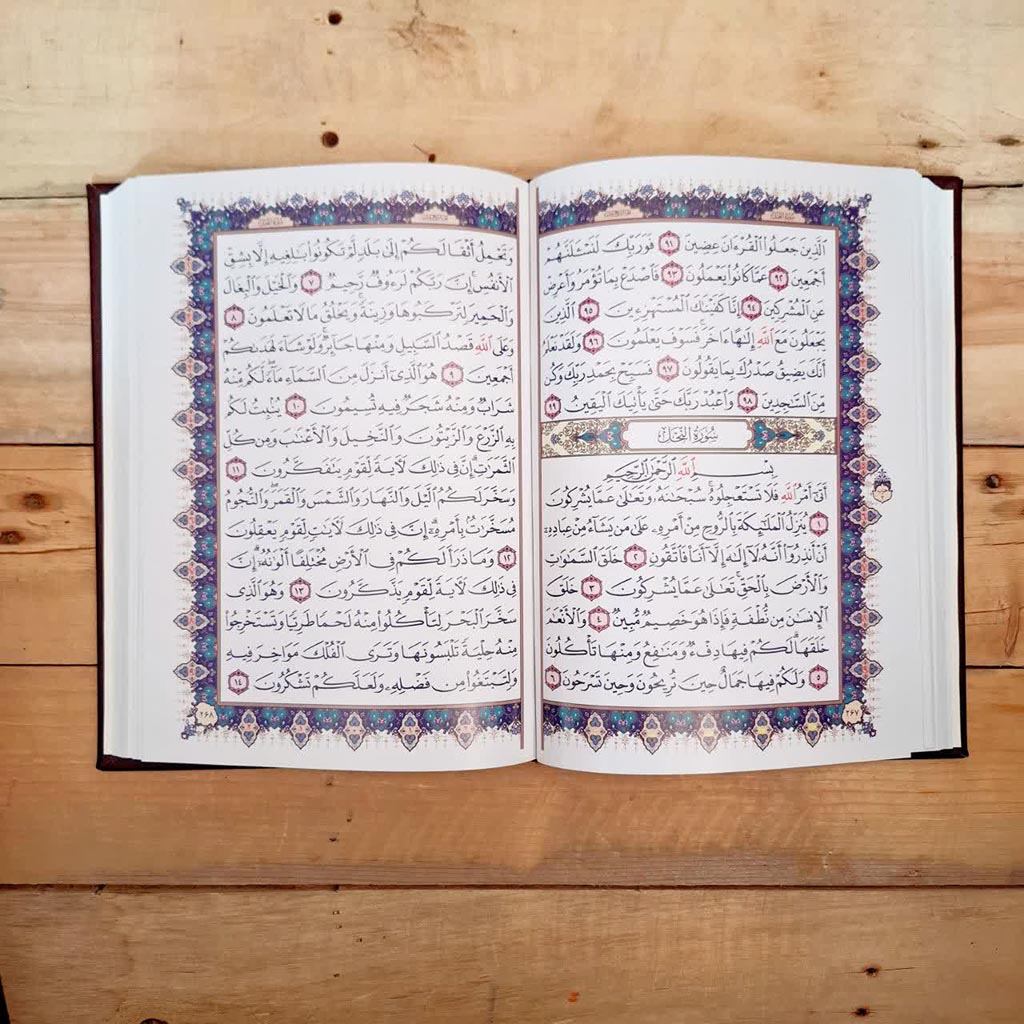 الَّذِينَ جَعَلُوا الْقُرْءَانَ عِضِينَ ٩١ فَوَرَبِّكَ لَنَسْـَٔلَنَّهُمْ
أَجْمَعِينَ ٩٢ عَمَّا كَانُوا يَعْمَلُونَ ٩٣ فَاصْدَعْ بِمَا تُؤْمَرُ وَأَعْرِضْ
عَنِ الْمُشْرِكِينَ ٩٤ إِنَّا كَفَيْنَٰكَ الْمُسْتَهْزِءِينَ ٩٥ الَّذِينَ
يَجْعَلُونَ مَعَ اللَّهِ إِلَٰهًا ءَاخَرَ فَسَوْفَ يَعْلَمُونَ ٩٦ وَلَقَدْ نَعْلَمُ
أَنَّكَ يَضِيقُ صَدْرُكَ بِمَا يَقُولُونَ ٩٧ فَسَبِّحْ بِحَمْدِ رَبِّكَ وَكُن
مِّنَ السَّٰجِدِينَ ٩٨ وَاعْبُدْ رَبَّكَ حَتَّىٰ يَأْتِيَكَ الْيَقِينُ ٩٩
سُورَةُ النَّحْلِ
بِسْمِ اللَّهِ الرَّحْمَٰنِ الرَّحِيمِ
أَتَىٰ أَمْرُ اللَّهِ فَلَا تَسْتَعْجِلُوهُ سُبْحَٰنَهُۥ وَتَعَٰلَىٰ عَمَّا يُشْرِكُونَ
١ يُنَزِّلُ الْمَلَٰٓئِكَةَ بِالرُّوحِ مِنْ أَمْرِهِۦ عَلَىٰ مَن يَشَآءُ مِنْ عِبَادِهِۦٓ
أَنْ أَنذِرُوٓا أَنَّهُۥ لَآ إِلَٰهَ إِلَّآ أَنَا۠ فَاتَّقُونِ ٢ خَلَقَ السَّمَٰوَٰتِ
وَالْأَرْضَ بِالْحَقِّ تَعَٰلَىٰ عَمَّا يُشْرِكُونَ ٣ خَلَقَ
الْإِنسَٰنَ مِن نُّطْفَةٍ فَإِذَا هُوَ خَصِيمٌ مُّبِينٌ ٤ وَالْأَنْعَٰمَ
خَلَقَهَا لَكُمْ فِيهَا دِفْءٌ وَمَنَٰفِعُ وَمِنْهَا تَأْكُلُونَ
٥ وَلَكُمْ فِيهَا جَمَالٌ حِينَ تُرِيحُونَ وَحِينَ تَسْرَحُونَ ٦
٢٦٧
وَتَحْمِلُ أَثْقَالَكُمْ إِلَىٰ بَلَدٍ لَّمْ تَكُونُوا بَٰلِغِيهِ إِلَّا بِشِقِّ
الْأَنفُسِ إِنَّ رَبَّكُمْ لَرَءُوفٌ رَّحِيمٌ ٧ وَالْخَيْلَ وَالْبِغَالَ
وَالْحَمِيرَ لِتَرْكَبُوهَا وَزِينَةً وَيَخْلُقُ مَا لَا تَعْلَمُونَ ٨
وَعَلَى اللَّهِ قَصْدُ السَّبِيلِ وَمِنْهَا جَآئِرٌ وَلَوْ شَآءَ لَهَدَىٰكُمْ
أَجْمَعِينَ ٩ هُوَ الَّذِىٓ أَنزَلَ مِنَ السَّمَآءِ مَآءً لَّكُم مِّنْهُ
شَرَابٌ وَمِنْهُ شَجَرٌ فِيهِ تُسِيمُونَ ١٠ يُنۢبِتُ لَكُم
بِهِ الزَّرْعَ وَالزَّيْتُونَ وَالنَّخِيلَ وَالْأَعْنَٰبَ وَمِن كُلِّ
الثَّمَرَٰتِ إِنَّ فِى ذَٰلِكَ لَءَايَةً لِّقَوْمٍ يَتَفَكَّرُونَ ١١
وَسَخَّرَ لَكُمُ الَّيْلَ وَالنَّهَارَ وَالشَّمْسَ وَالْقَمَرَ وَالنُّجُومُ
مُسَخَّرَٰتٌۢ بِأَمْرِهِۦٓ إِنَّ فِى ذَٰلِكَ لَءَايَٰتٍ لِّقَوْمٍ يَعْقِلُونَ
١٢ وَمَا ذَرَأَ لَكُمْ فِى الْأَرْضِ مُخْتَلِفًا أَلْوَٰنُهُۥٓ إِنَّ
فِى ذَٰلِكَ لَءَايَةً لِّقَوْمٍ يَذَّكَّرُونَ ١٣ وَهُوَ الَّذِى
سَخَّرَ الْبَحْرَ لِتَأْكُلُوا مِنْهُ لَحْمًا طَرِيًّا وَتَسْتَخْرِجُوا
مِنْهُ حِلْيَةً تَلْبَسُونَهَا وَتَرَى الْفُلْكَ مَوَاخِرَ فِيهِ
وَلِتَبْتَغُوا مِن فَضْلِهِۦ وَلَعَلَّكُمْ تَشْكُرُونَ ١٤
٢٦٨